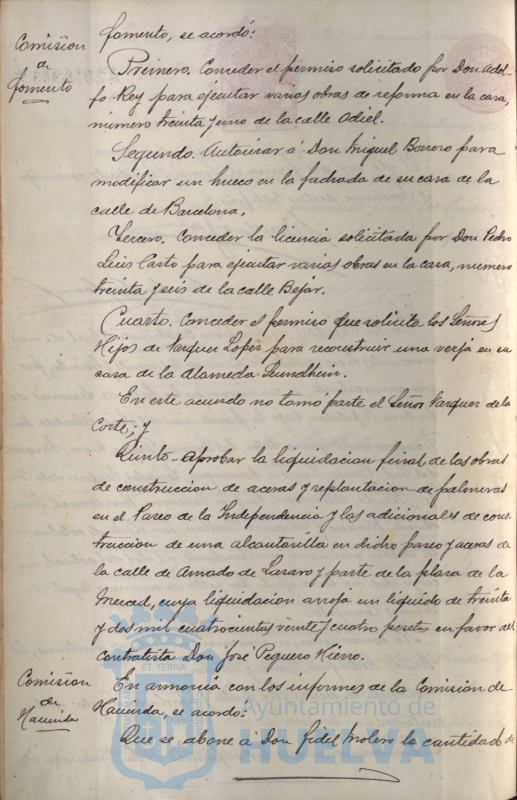 Comision
de
Fomento
fomento, se acordó:
Primero. Conceder el permiso solicitado por Don Adol-
fo Rey para ejecutar varias obras de reforma en la casa,
número treinta y uno de la calle Odiel.
Segundo. Autorizar á Don Miguel Borrero para
modificar un hueco en la fachada de su casa de la
calle de Barcelona.
Tercero. Conceder la licencia solicitada por Don Pedro
Luis Casto para ejecutar varias obras en la casa, numero
treinta y seis de la calle Bejar.
Cuarto. Conceder el permiso que solicita los Señores
Hijos de Vazquez Lopez para reconstruir una verja en su
casa de la Alameda Sundhein.
En este acuerdo no tomó parte el Señor Vazquez de la
Corte; y
Quinto. Aprobar la liquidacion final de las obras
de construccion de aceras y replantacion de palmeras
en el Paseo de la Independencia y las adicionales de cons-
truccion de una alcantarilla en dicho paseo y aceras de
la calle de Amado de Lazaro y parte de la plaza de la
Merced, cuya liquidacion arroja un líquido de treinta
y dos mil cuatrocientas veinte y cuatro pesetas en favor del
contratista Don José Peguero Hierro.
Comision
de
Hacienda
En armonía con los informes de la Comision de
Hacienda, se acordó:
Que se abone á Don Fidel Molero la cantidad de
ET TERRÆ
Ayuntamiento de
HUELVA